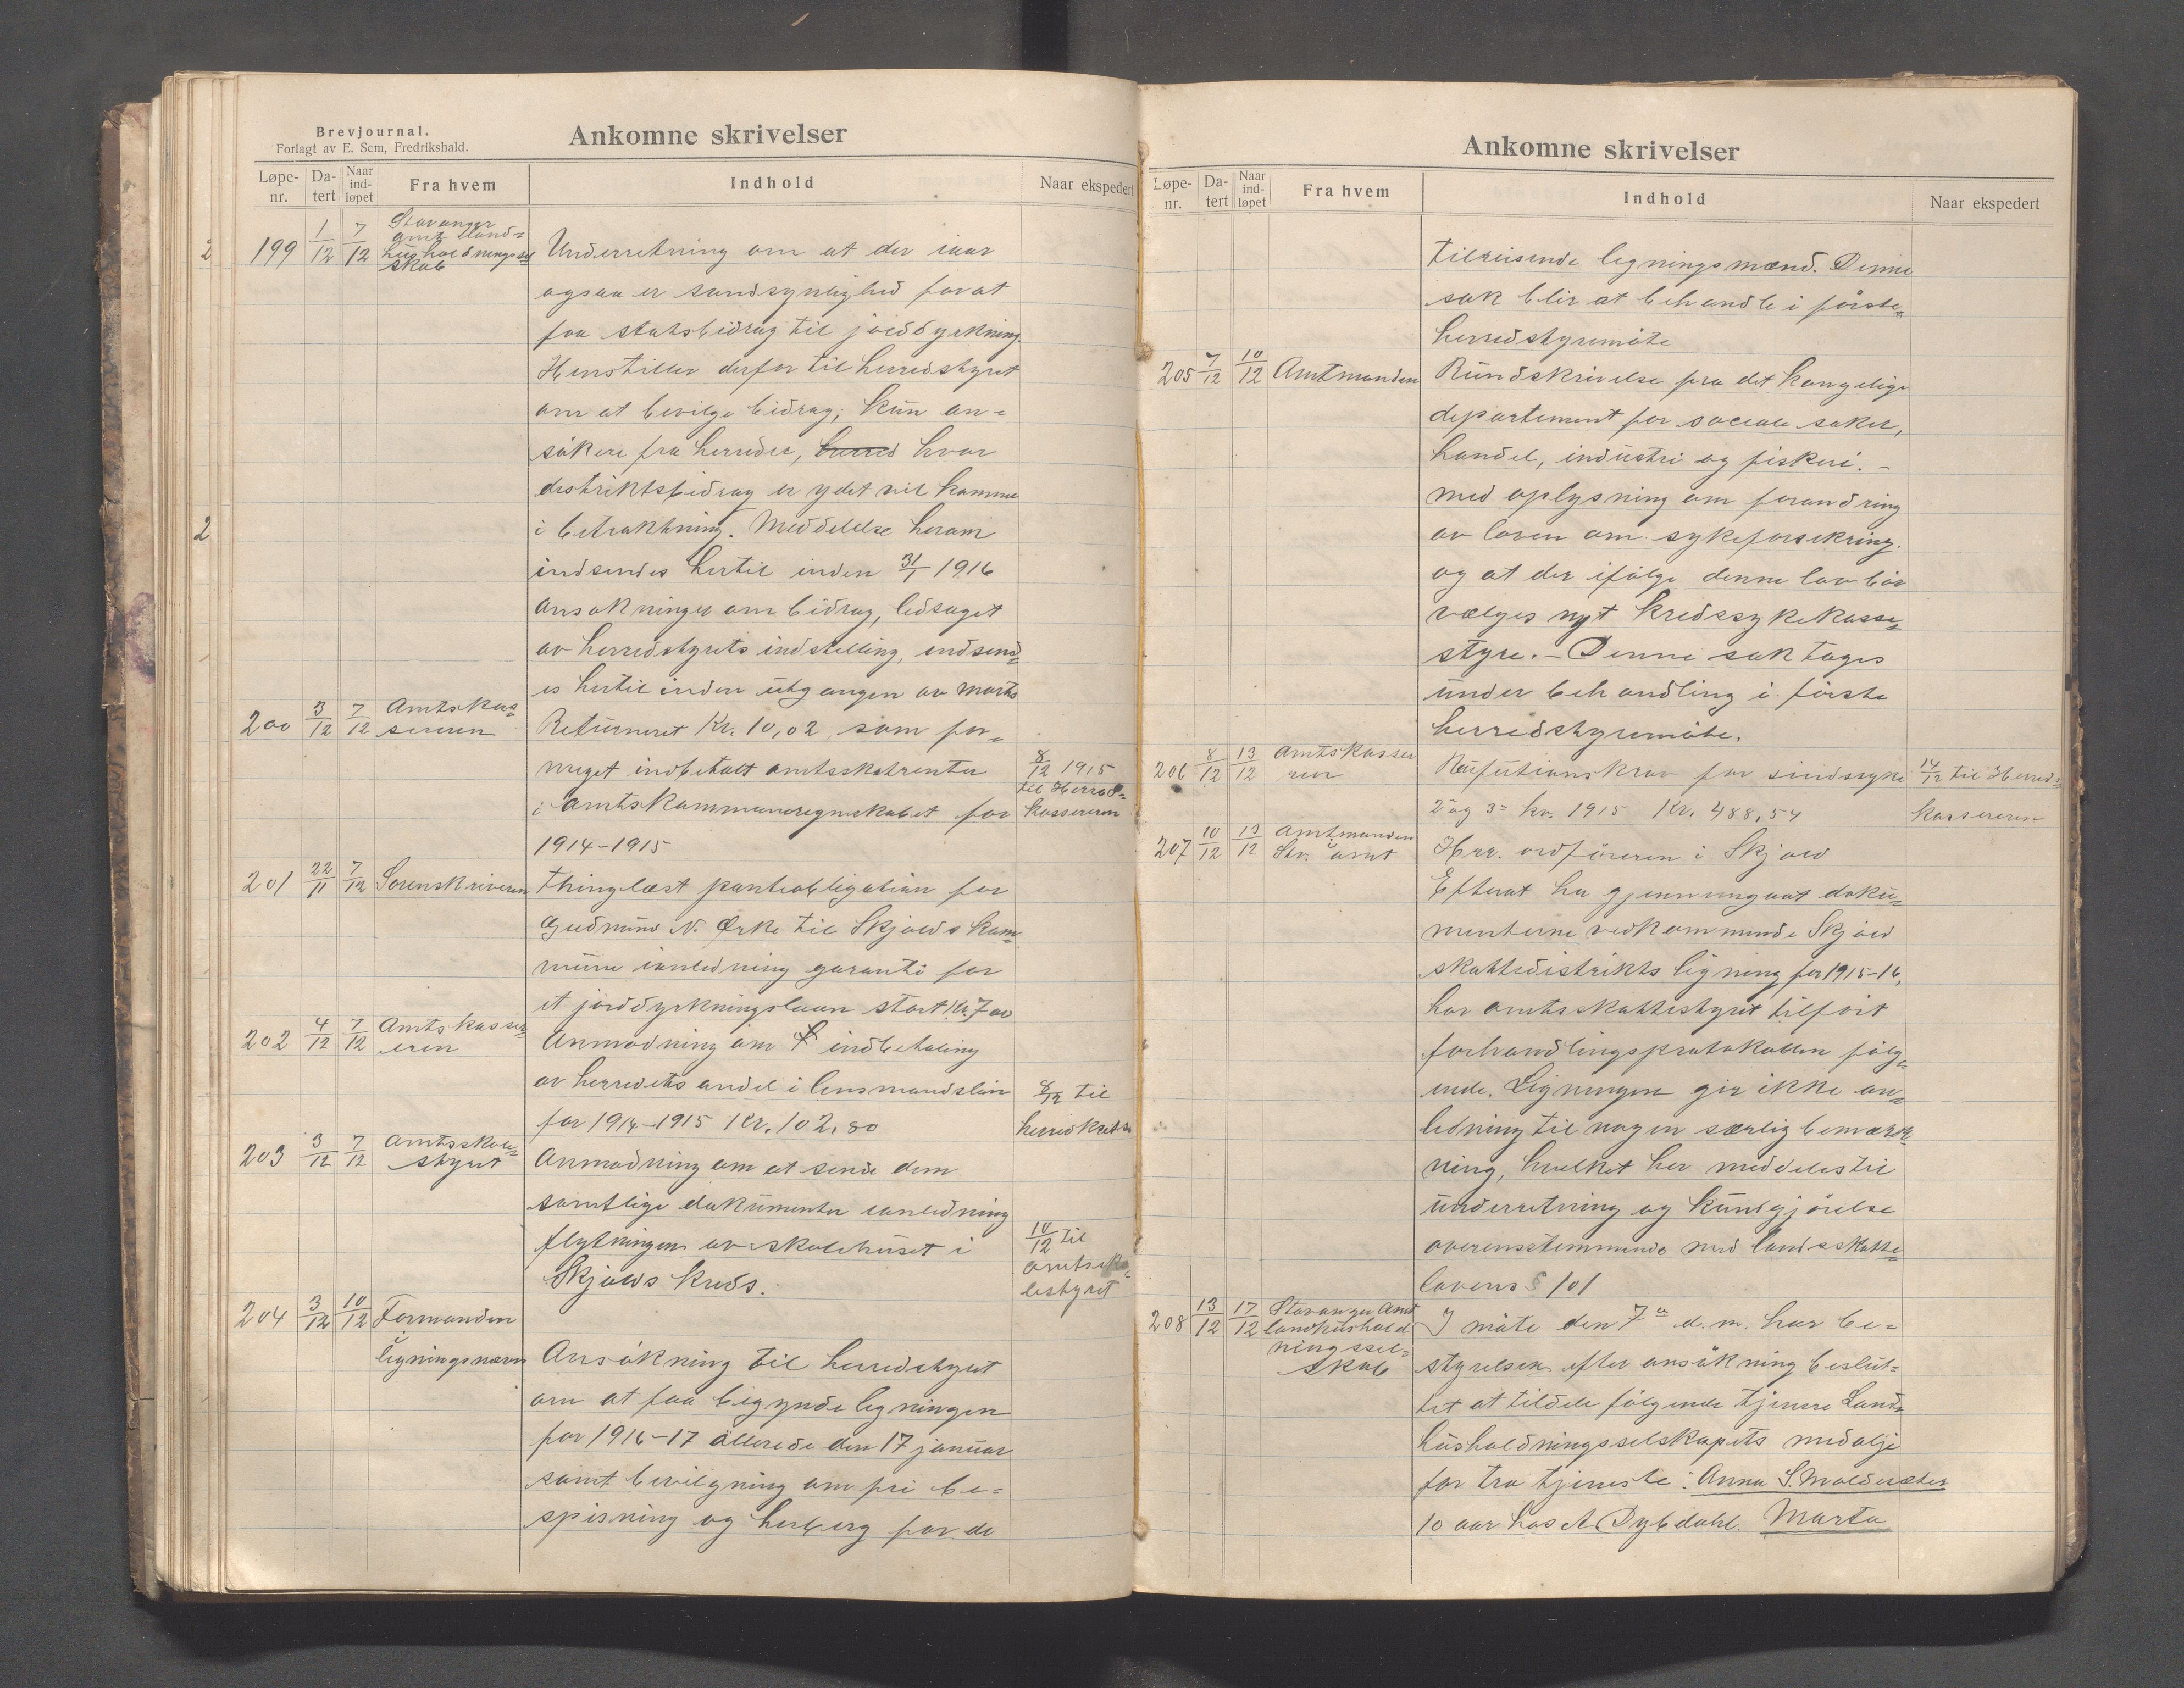 Brevjournal.
Forlagt av E. Sem, Fredrikshald.
Ankomne skrivelser
Løpe-nr. Da-tert Naar ind-løpet Fra hvem Indhold Naar ekspedert
199 1/12 7/12 Stavanger amts land-
husholdningssel
skab
Underretning om at der iaar
ogsaa er sandsynlighed forat
faa statsbidrag til jorddyrkning.
Henstiller derfor til herredstyret
om at bevilge bidrag; kun an-
søkere fra herreder, herred hvor
distriktsbidrag er ydet vil komme
i betraktning. Meddelelse herom
indsendes hertil inden 31/1 1916
Ansøkninger om bidrag, ledsaget
av herredstyrets indstilling, indsend-
es hertil inden utgangen av marts
200 3/12 7/12 Amtskas-
sereren
Returneret Kr. 10,02 som for-
meget indbetalt amtsskatrenter
i Amtskommuneregnskabet for
1914-1915
8/12 1915
til Herreds-
kassereren
201 22/11 7/12 Sorenskriveren
Thinglæst panteobligation for
Gudmund N. Ørke til Skjolds kom-
mune ianledning garanti for
et jorddyrkningslaan stort Kr. 700
202 4/12 7/12 Amtskasser-
eren
Anmodning om indbetaling
av herredets andel i lensmandsløn
for 1914-1915 Kr. 102,80
8/12 til
herredkass
203 3/12 7/12 Amtsskole-
styret
Anmodning om at sende dem
samtlige dokumenter ianledning
flytningen av skolehuset i
Skjolds kreds.
10/12 til
amtssko-
lestyret
204 3/12 10/12 Formanden
ligningsnævn
Ansøkning til herredstyret
om at faa begynde ligningen
for 1916-17 allerede den 17 januar
samt bevilgning om fri be-
spisning og herberg for de
2
2
Ankomne skrivelser
Løpe-nr. Da-tert Naar ind-løpet Fra hvem Indhold Naar ekspedert
tilreisende ligningsmænd. Denne
sak blir at behandle i første
herredstyremøte
205 7/12 10/12 Amtmanden
Rundskrivelse fra det kongelige
departement for sociale saker,
handel, industri og fiskeri. -
med oplysning om forandring
av loven om sykeforsekring.
og at der ifølge denne lov bør
vælges nyt kredssykekasse-
styre. - Denne sak tages
under behandling i første
herredstyremøte.
206 8/12 13/12 Amtskasser
eren
Refutionskrav for sindssyke
2 og 3 kv. 1915 Kr. 488,54
14/12 til Herreds-
kassereren
207 10/12 13/12 Amtmanden
Stv. amt
Hrr. ordføreren i Skjold
Efterat ha gjennemgaat doku-
menterne vedkommende Skjold
skattedistrikts ligning for 1915-16,
har amtsskattestyret tilført
forhandlingsprotokollen følg-
ende. Ligningen gir ikke an-
ledning til nogen særlig bemærk-
ning, hvilket her meddeles til
underretning og kundgjørelse
overensstemmende med landsskatte-
lovens § 101
208 13/12 17/12 Stavanger Amt
landhushold
ningssel-
skab
I møte den 7de d.m. har be-
styrelsen efter ansøkning beslut-
tet at tildele følgende tjenere Land-
husholdningsselskapets medalje
for tro tjeneste: Anna S. Moldesæter
10 aar hos A Dybdahl. Marta